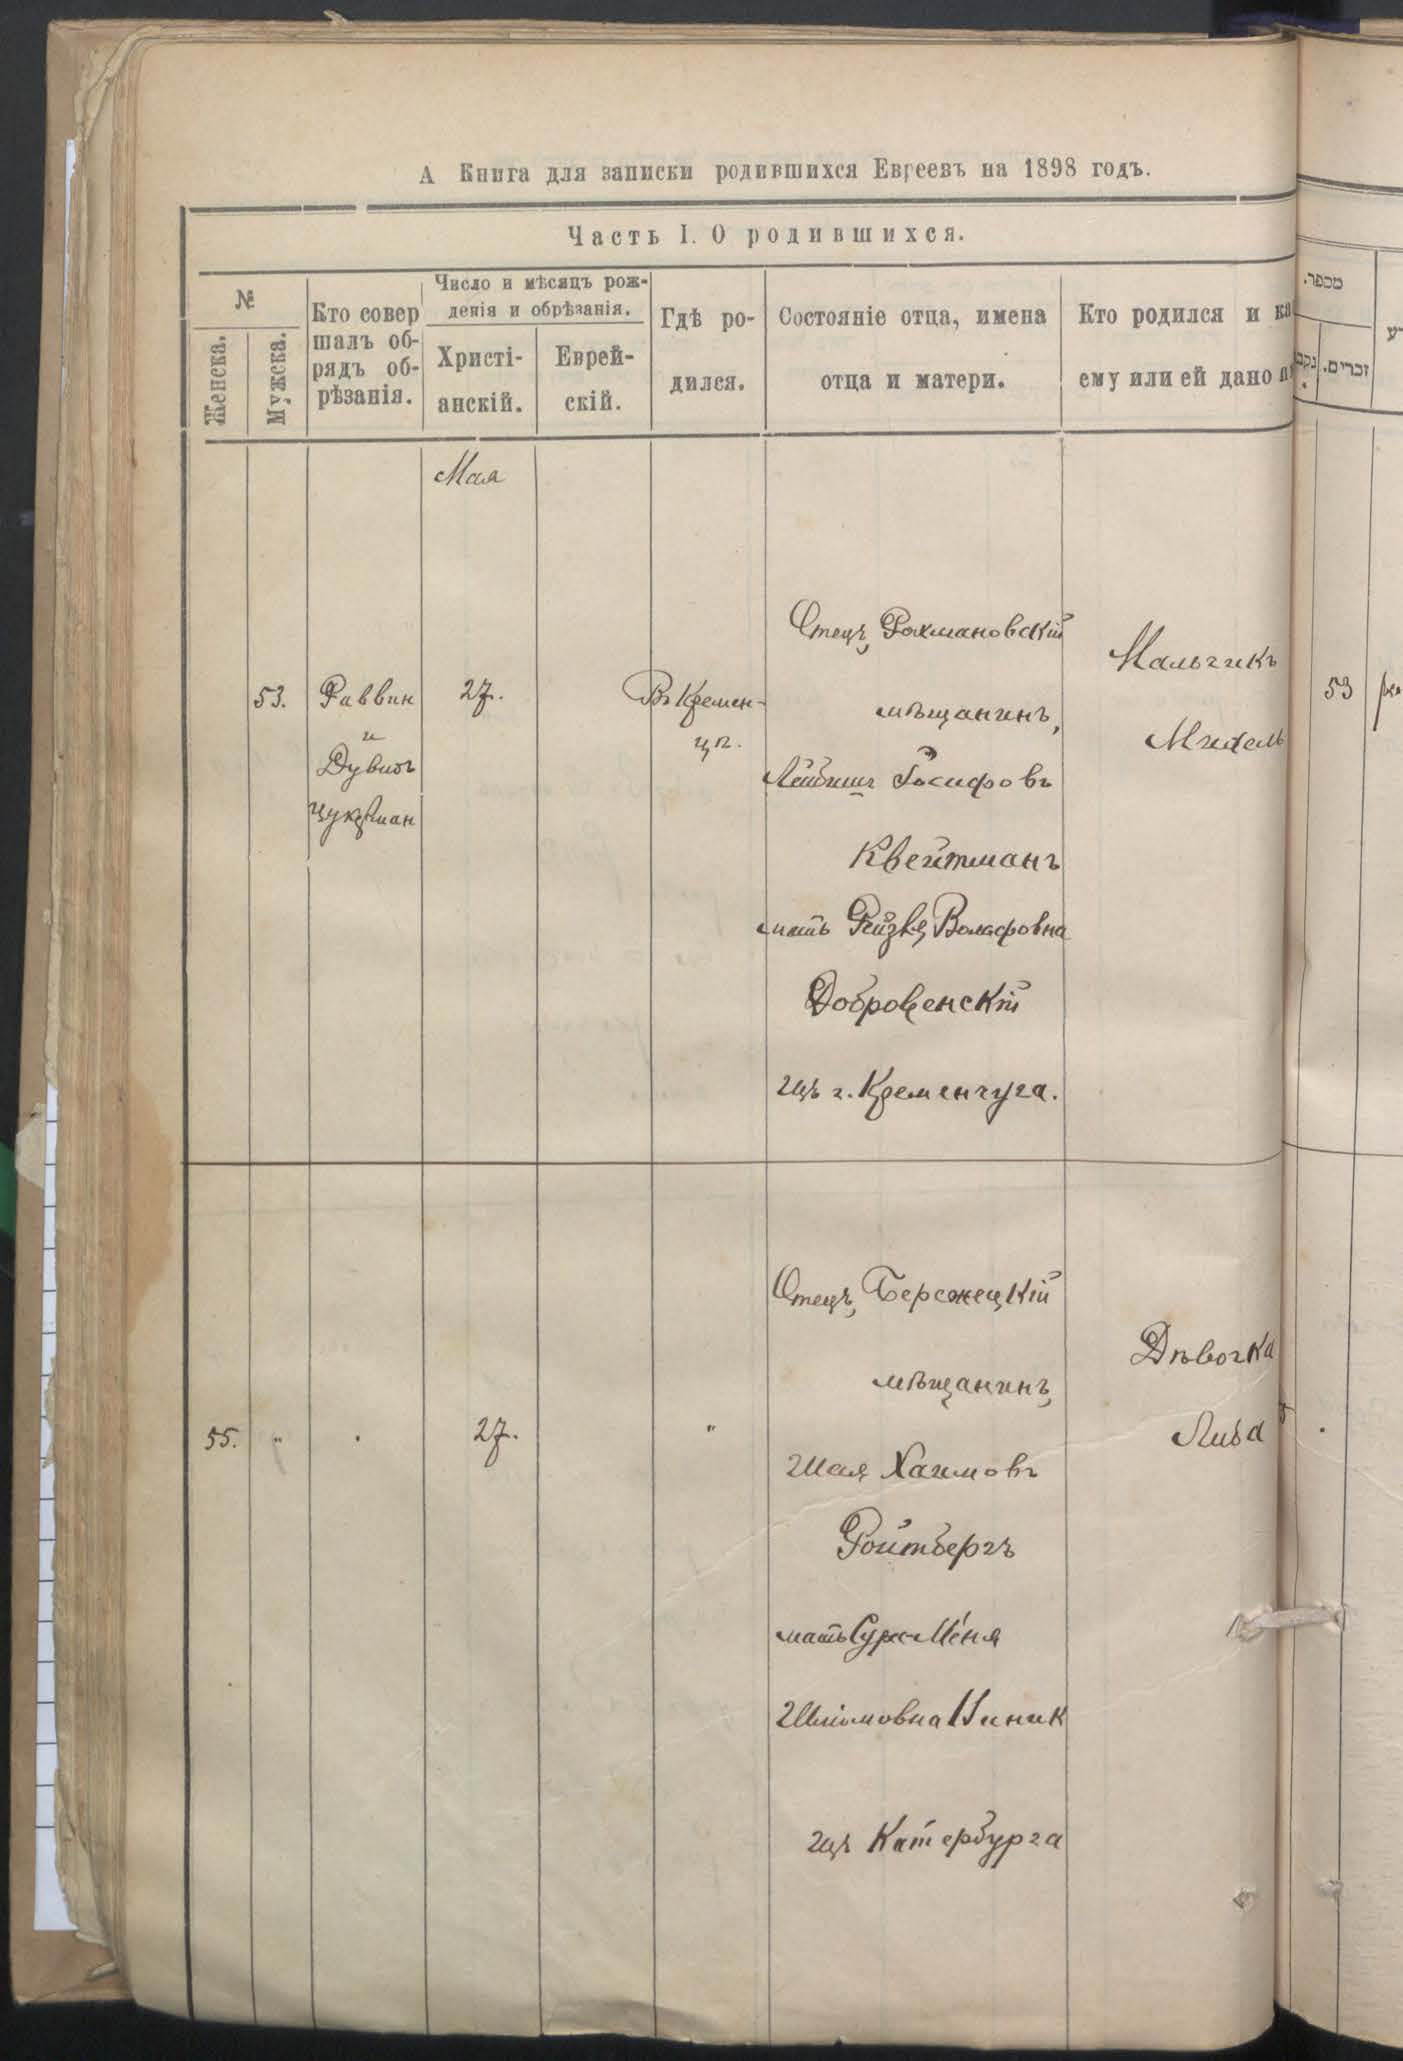 А Книга для записки родившихся Евреевъ на 1898 годъ.
Часть I. О родившихся.
№
Женска.
Мужска.
Кто совер
шалъ об-
рядъ об-
рѣзанія.
Число и мѣсяцъ рож-
денія и обрѣзанія.
Христі-
анскій.
Еврей-
скій.
Гдѣ ро-
дился.
Состояніе отца, имена
отца и матери.
Кто родился и ка
ему или ей дано
מספר.
זכרים.
Мая
53.
Раввин
и
Дувидъ
Цукерман
27.
Въ Кремен-
цѣ.
Отецъ, Рахмановскій
мѣщанинъ,
Лейбишъ Іосифовъ
Квейтманъ
мать Рейзя Вольфовна
Добровенскій
изъ г. Кременчуга.
Мальчикъ
Михель
53
55.
"
.
27.
"
Отецъ, Бережецкій
мѣщанинъ,
Шая Хаимовъ
Ройтбергъ
мать Сура-Меня
Шліомовна Киник
изъ Катербурга
Дѣвочка
Люба
.